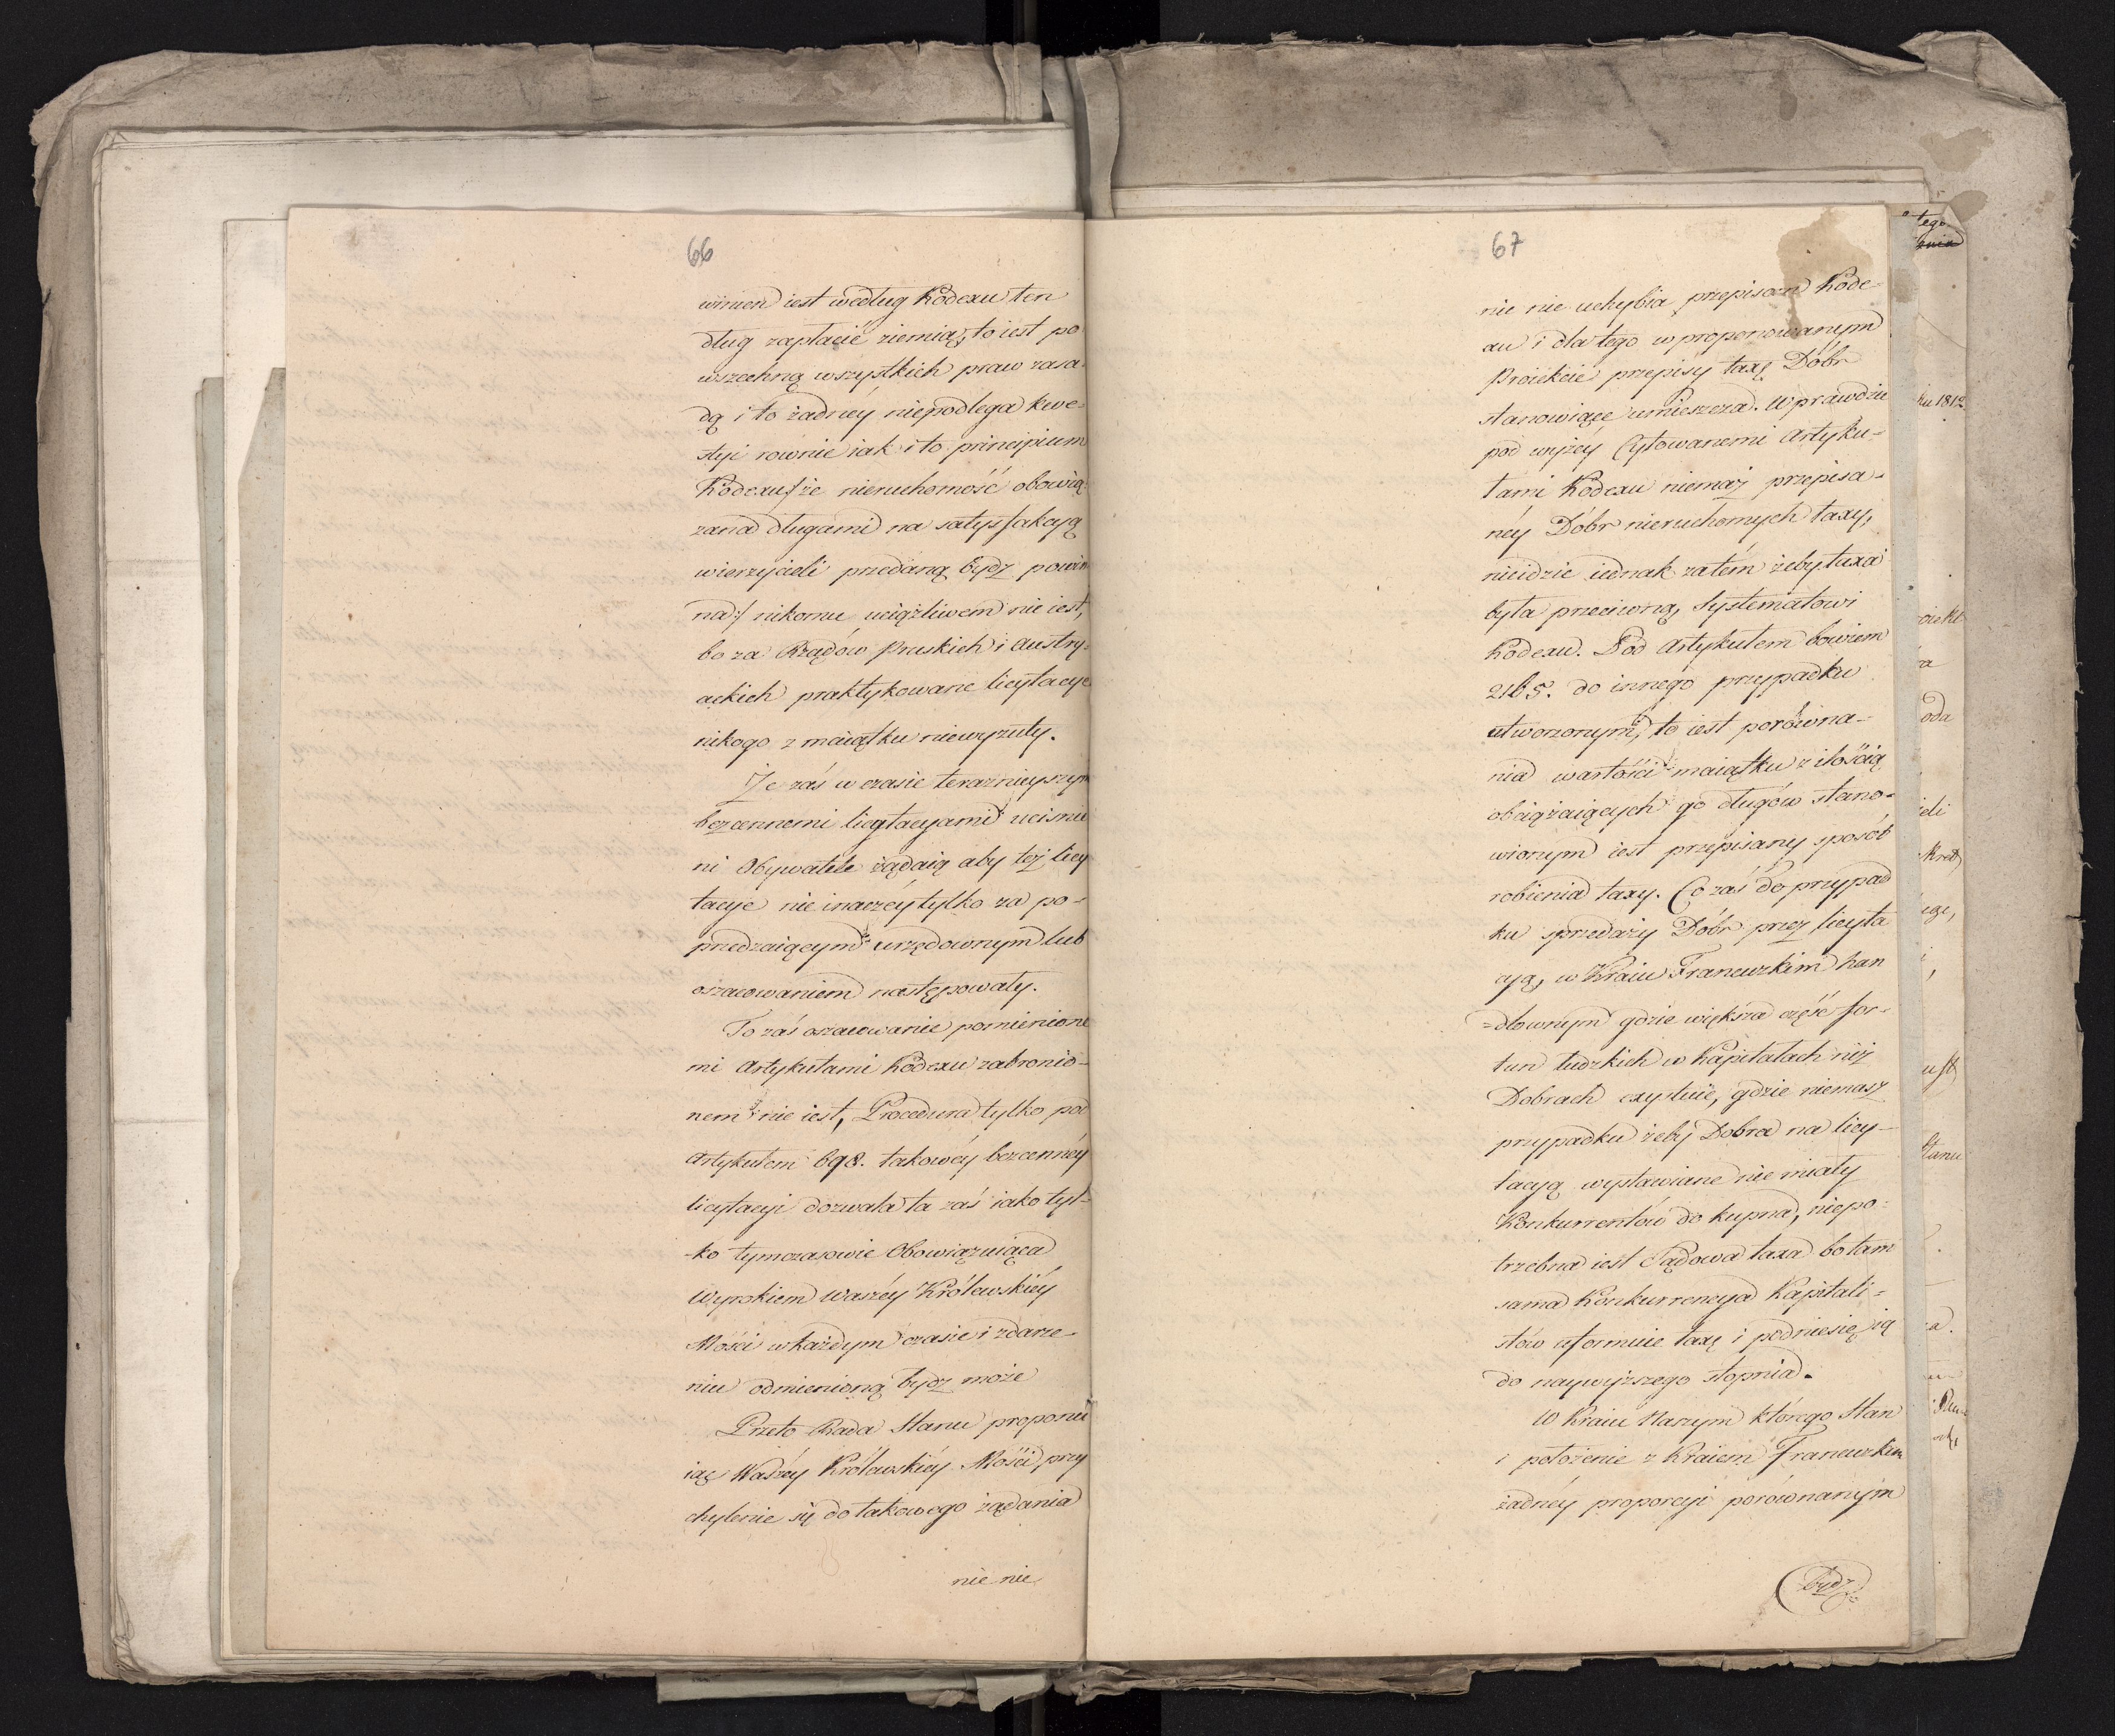 66
winien iest według Kodexu ten
dług zapłacić ziemią, to iest po
wszechną wszystkich praw zasa
dą i to żadnéy niepodlega kwe-
styi rownie iak i to principium
Kodexu /:że nieruchomość obowią
zana długami na satysfakcyą
wierzycieli przedaną bydz powin
na:/ nikomu uciążliwem nie iest,
bo za Rządów Pruskich i Austry-
ackich praktykowane licytacye
nikogo z maiątku niewyzuły.
Że zaś w czasie teraznieyszym
bezcennemi licytacyami uciśnie
ni Obywatele żądaią aby też licy
tacye nie inaczéy tylko za po-
przedzaiącym urzędownym lub
oszacowaniem następowały.
To zaś oszacowanie pomienione
mi Artykułami Kodexu zabronio-
nem nie iest, Procedura tylko pod
Artykułem 698. takowéy bezcennéy
licytacyi dozwala ta zaś iako tyl-
-ko tymczasowie Obowiązuiąca
Wyrokiem Waszéy Królewskiéy
Mości w każdym czasie i zdarze-
niu odmienioną bydz może
Przeto Rada Stanu proponu
iąc Waszéy Królewskiéy Mości przy
chylenie się do takowego żądania
nie nie
67
nie nie uchybia przepisom Kode-
xu i dla tego w proponowanym
Proiekcie przepisy taxę Dóbr
stanowiące umieszcza. Wprawdzie
pod wyżéy Cytowanemi Artyku-
łami Kodexu niemasz przepisa-
néy Dóbr nieruchomych taxy,
nieidzie iednak zatém żeby taxa
była przeciwną, Systematowi
Kodexu. Pod Artykułem bowiem
2165. do innego przypadku
utworzonym, to iest porówna-
nia wartości maiątku z ilością
obciążaiących go długów stano-
wionym iest przepisany sposób
robienia taxy. Co zaś do przypad
ku sprzedaży Dóbr przez licyta
cyą, w Kraiu Francuzkim han
=dlownym gdzie większa część for-
tun ludzkich w Kapitałach niż
Dobrach exystuie, gdzie niemasz
przypadku żeby Dobra na licy-
tacyą wystawiane nie miały
Konkurrentów do kupna, niepo-
trzebna iest Sądowa taxa bo tam
sama Konkurrencya Kapitali-
stów uformuie taxę i podniesię ią
do naywyższego stopnia.
W Kraiu Naszym którego Stan
i położenie z Kraiem Francuzkim
żadnéy proporcyi porównanym
bydz
tego
ku 1812